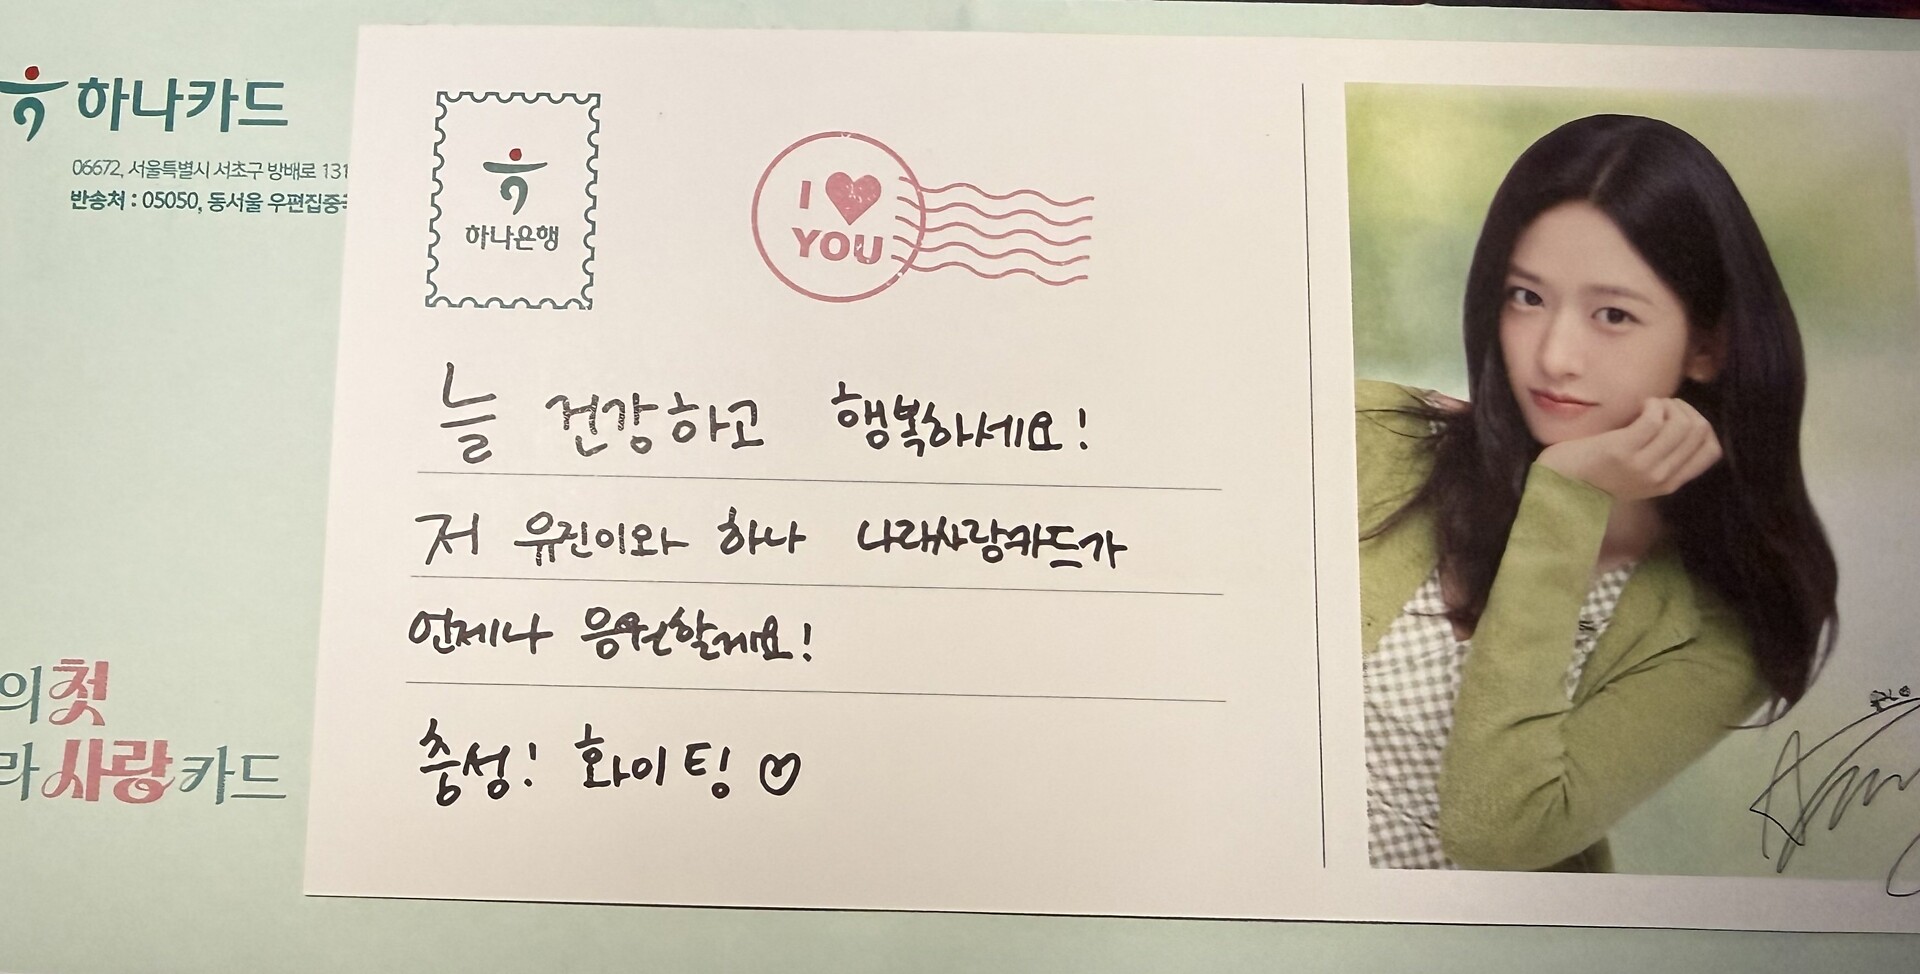 하나카드
06672, 서울특별시 서초구 방배로 131
반송처 : 05050, 동서울 우편집중
하나은행
I ♥
YOU
늘 건강하고 행복하세요!
저 유진이와 하나 나라사랑카드가
언제나 응원할게요!
충성! 화이팅 ♡
의 첫
라사랑카드